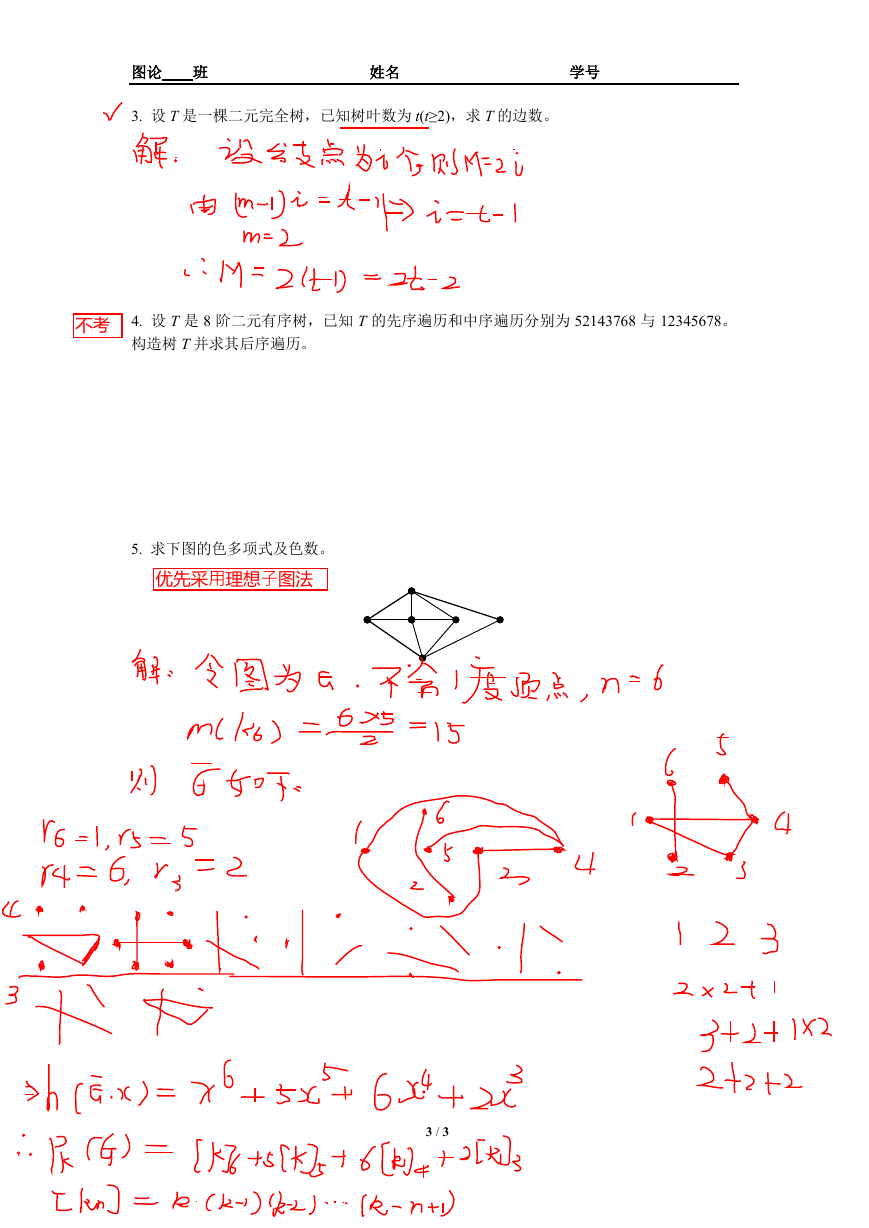 图论 班 姓名 学号
√ 3. 设 T 是一棵二元完全树，已知树叶数为 t(t≥2)，求 T 的边数。
解： 设分支点为i个，则M=2i
由 (m-1)i = t-1 => i=t-1
m=2
∴ M = 2(t-1) = 2t-2
不考
4. 设 T 是 8 阶二元有序树，已知 T 的先序遍历和中序遍历分别为 52143768 与 12345678。
构造树 T 并求其后序遍历。
5. 求下图的色多项式及色数。
优先采用理想子图法
解： 令图为G . 不含1度顶点, n=6
m(k6) = 6×5/2 = 15
则 G̅ 如下:
r6=1, r5=5
r4=6, r3=2
1 6 5 2 3 4
6 5 1 4 2 3
4
3
1 2 3
2×2+1
3+2+1×2
2+2+2
=>h(G̅.x) = x^6 + 5x^5 + 6x^4 + 2x^3
3 / 3
∴ Pk(G) = [k]6+5[k]5+6[k]4+2[k]3
[kn] = k·(k-1)(k-2)···(k-n+1)